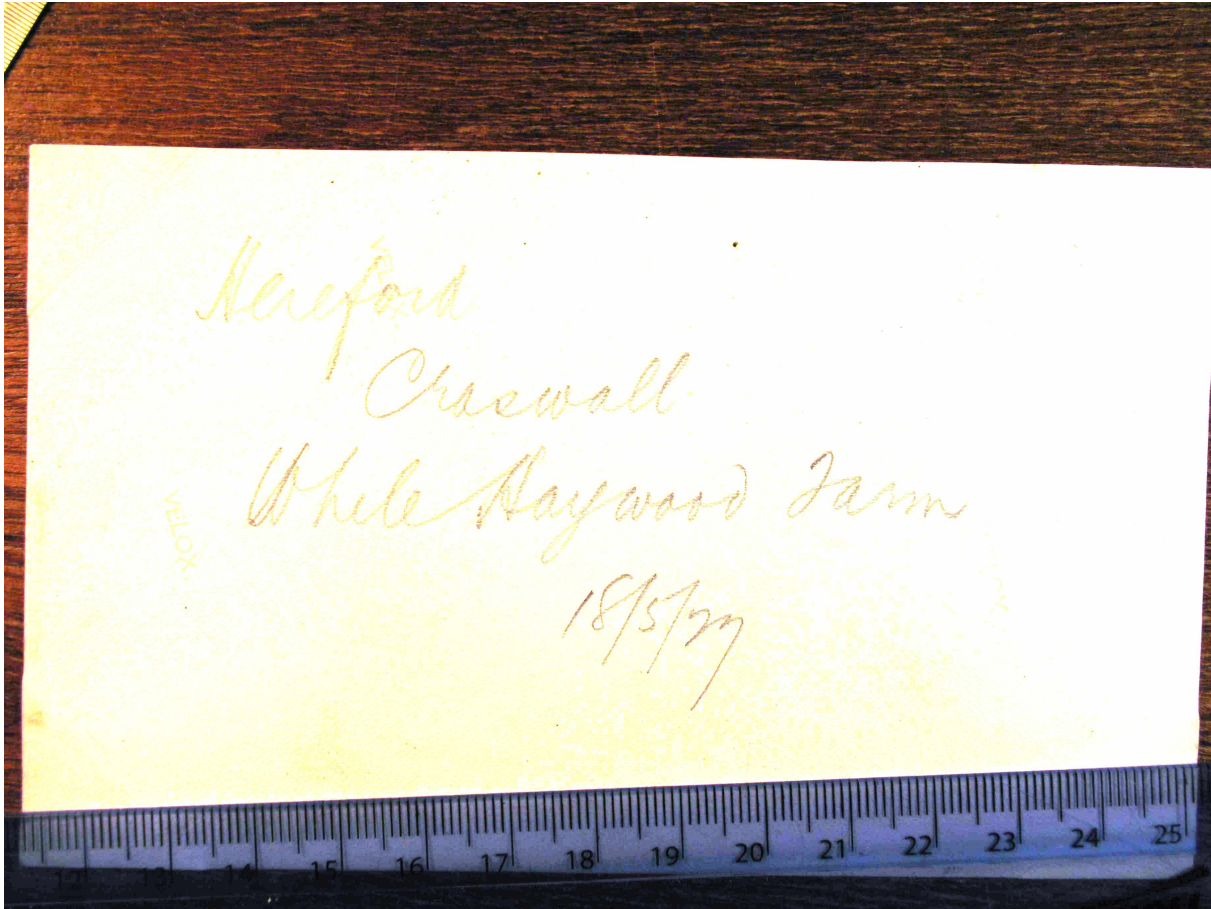 Hereford
Craswall
While Haywood Farm
18/5/27
VELOX
12 13 14 15 16 17 18 19 20 21 22 23 24 25